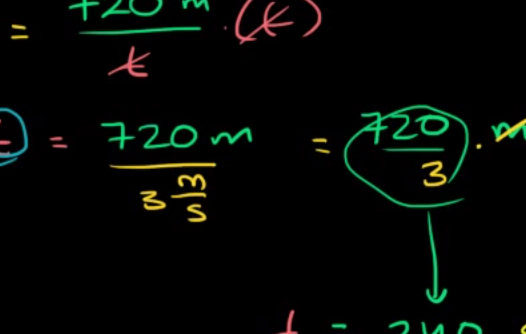 = 720 m / t · (t)
t = 720 m / 3 m/s = 720 / 3 · m
t = 240 s